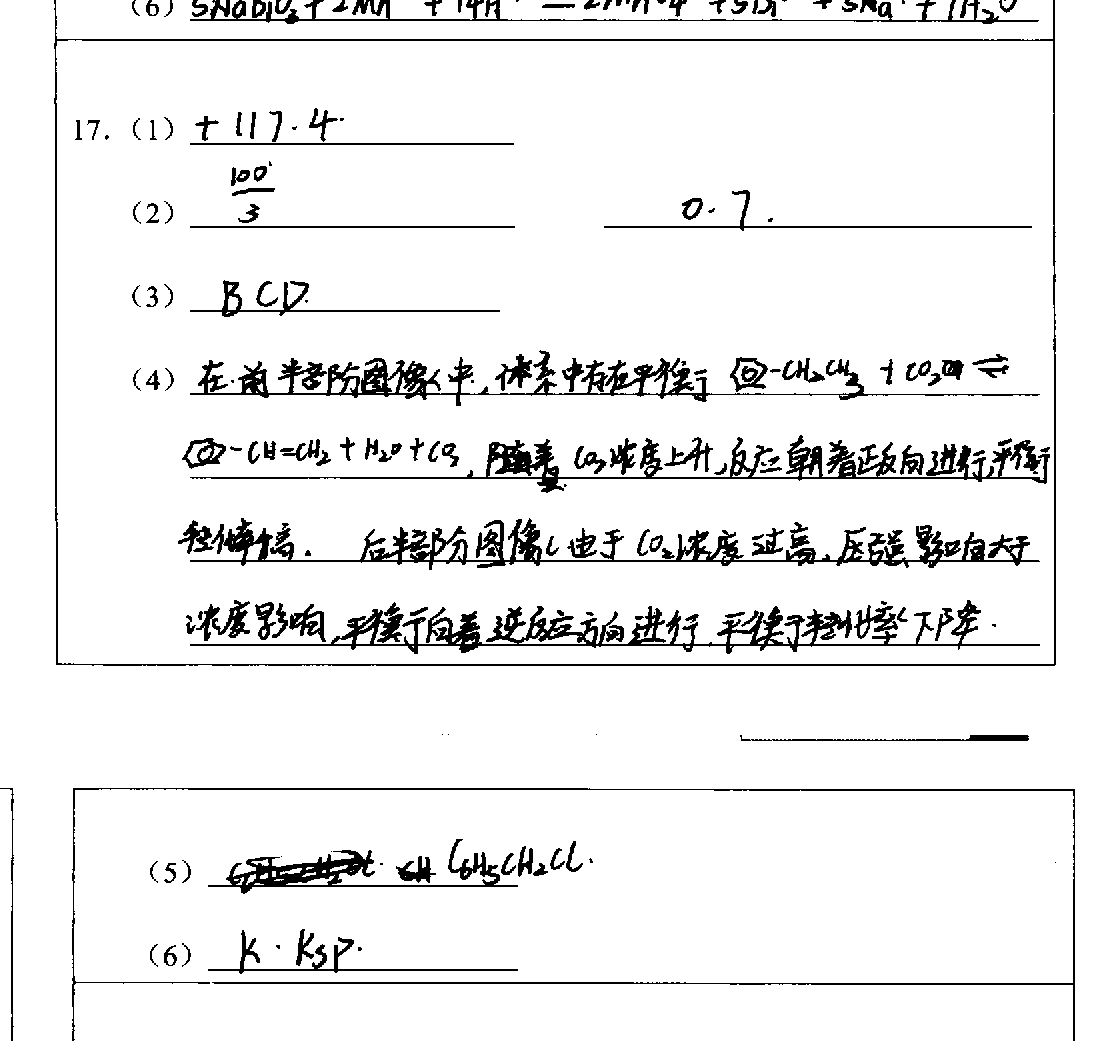 (6) 5NaBiO₃ + 2Mn + 14H = 2MnO4 + 5Bi + 5Na + 7H₂O
17.（1）+117.4
（2）100/3 0.7.
（3）BCD.
（4）在前半部份图像中，体系中存在平衡 -CH₂CH₃ + CO₂ ⇌
-CH=CH₂ + H₂O + CO，随着 CO₂浓度上升，反应朝着正反向进行，平衡
转化率高. 后半部分图像 由于 CO₂浓度过高，压强影响大于
浓度影响，平衡向着逆反应方向进行，平衡转化率下降.
（5）C₆H₅CH₂Cl.
（6）K·Ksp.